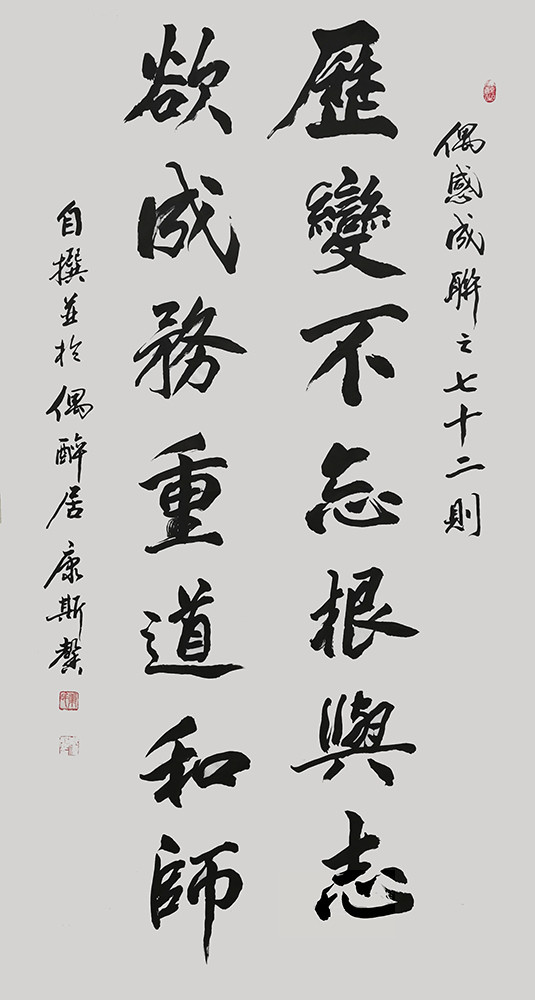 偶感成聯之七十二則
歷變不忘根與志
欲成務重道和師
自撰並於偶醉居康斯馨